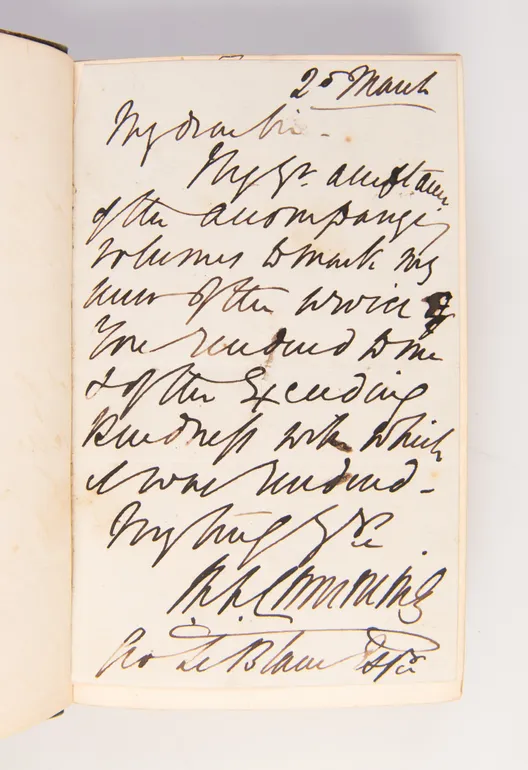 2d March
My dear Sir -
My Yr. acceptance
of the accompanying
volumes to mark my
sense of the service
You rendered to me
& of the Exceeding
Kindness with which
it was rendered -
Cumming
Geo Le Blanc Esqre